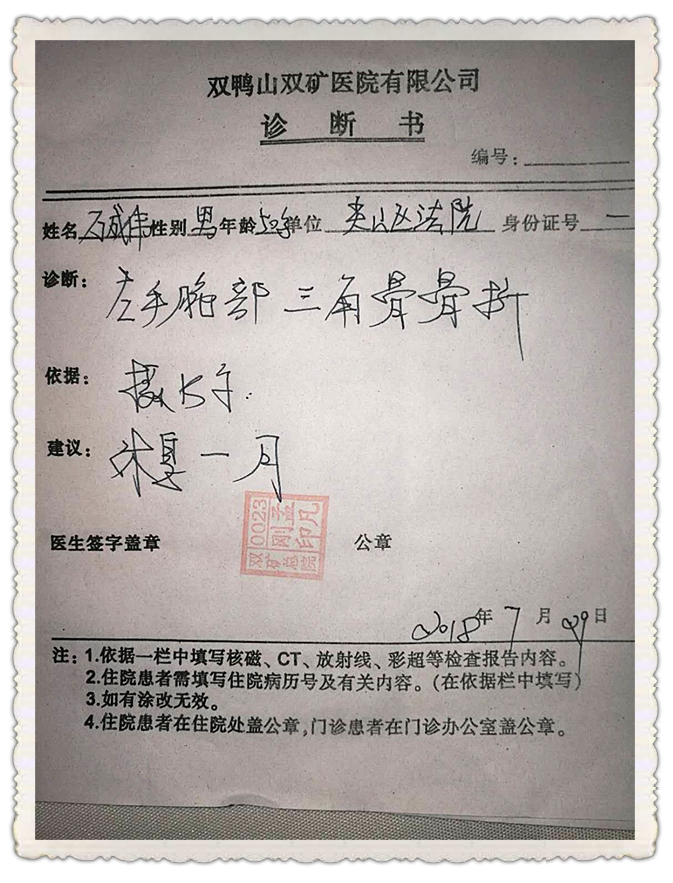 双鸭山双矿医院有限公司
诊 断 书
编号：
姓名 石成伟 性别 男 年龄 50岁 单位 尖山区法院 身份证号 一
诊断： 左手腕部三角骨骨折
依据： 摄片
建议： 休息一月
0023 孟刚印凡 双矿总院
医生签字盖章 公章
2018年7月29日
注：1.依据一栏中填写核磁、CT、放射线、彩超等检查报告内容。
2.住院患者需填写住院病历号及有关内容。(在依据栏中填写)
3.如有涂改无效。
4.住院患者在住院处盖公章,门诊患者在门诊办公室盖公章。